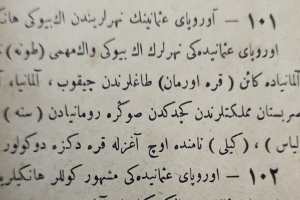 ۱۰۱ — آوروپای عثمانینك نهرلریندن اك بیوكی هانك
اوروپای عثمانیده‌كی نهرلرك اك بیوكی واك مهمی ( طونه )
آلمانیاده كائن ( قره اورمان ) طاغلرندن چیقوب ، آلمانیا ،
صربستان مملكتلرندن كچدكدن صوكره رومانیادن ( سنه )
لیاس ) ، ( كیلی ) نامنده اوچ آغزله قره دكزه دوكولور
۱۰۲ — اوروپای عثمانیده‌كی مشهور كوللر هانكیلرید